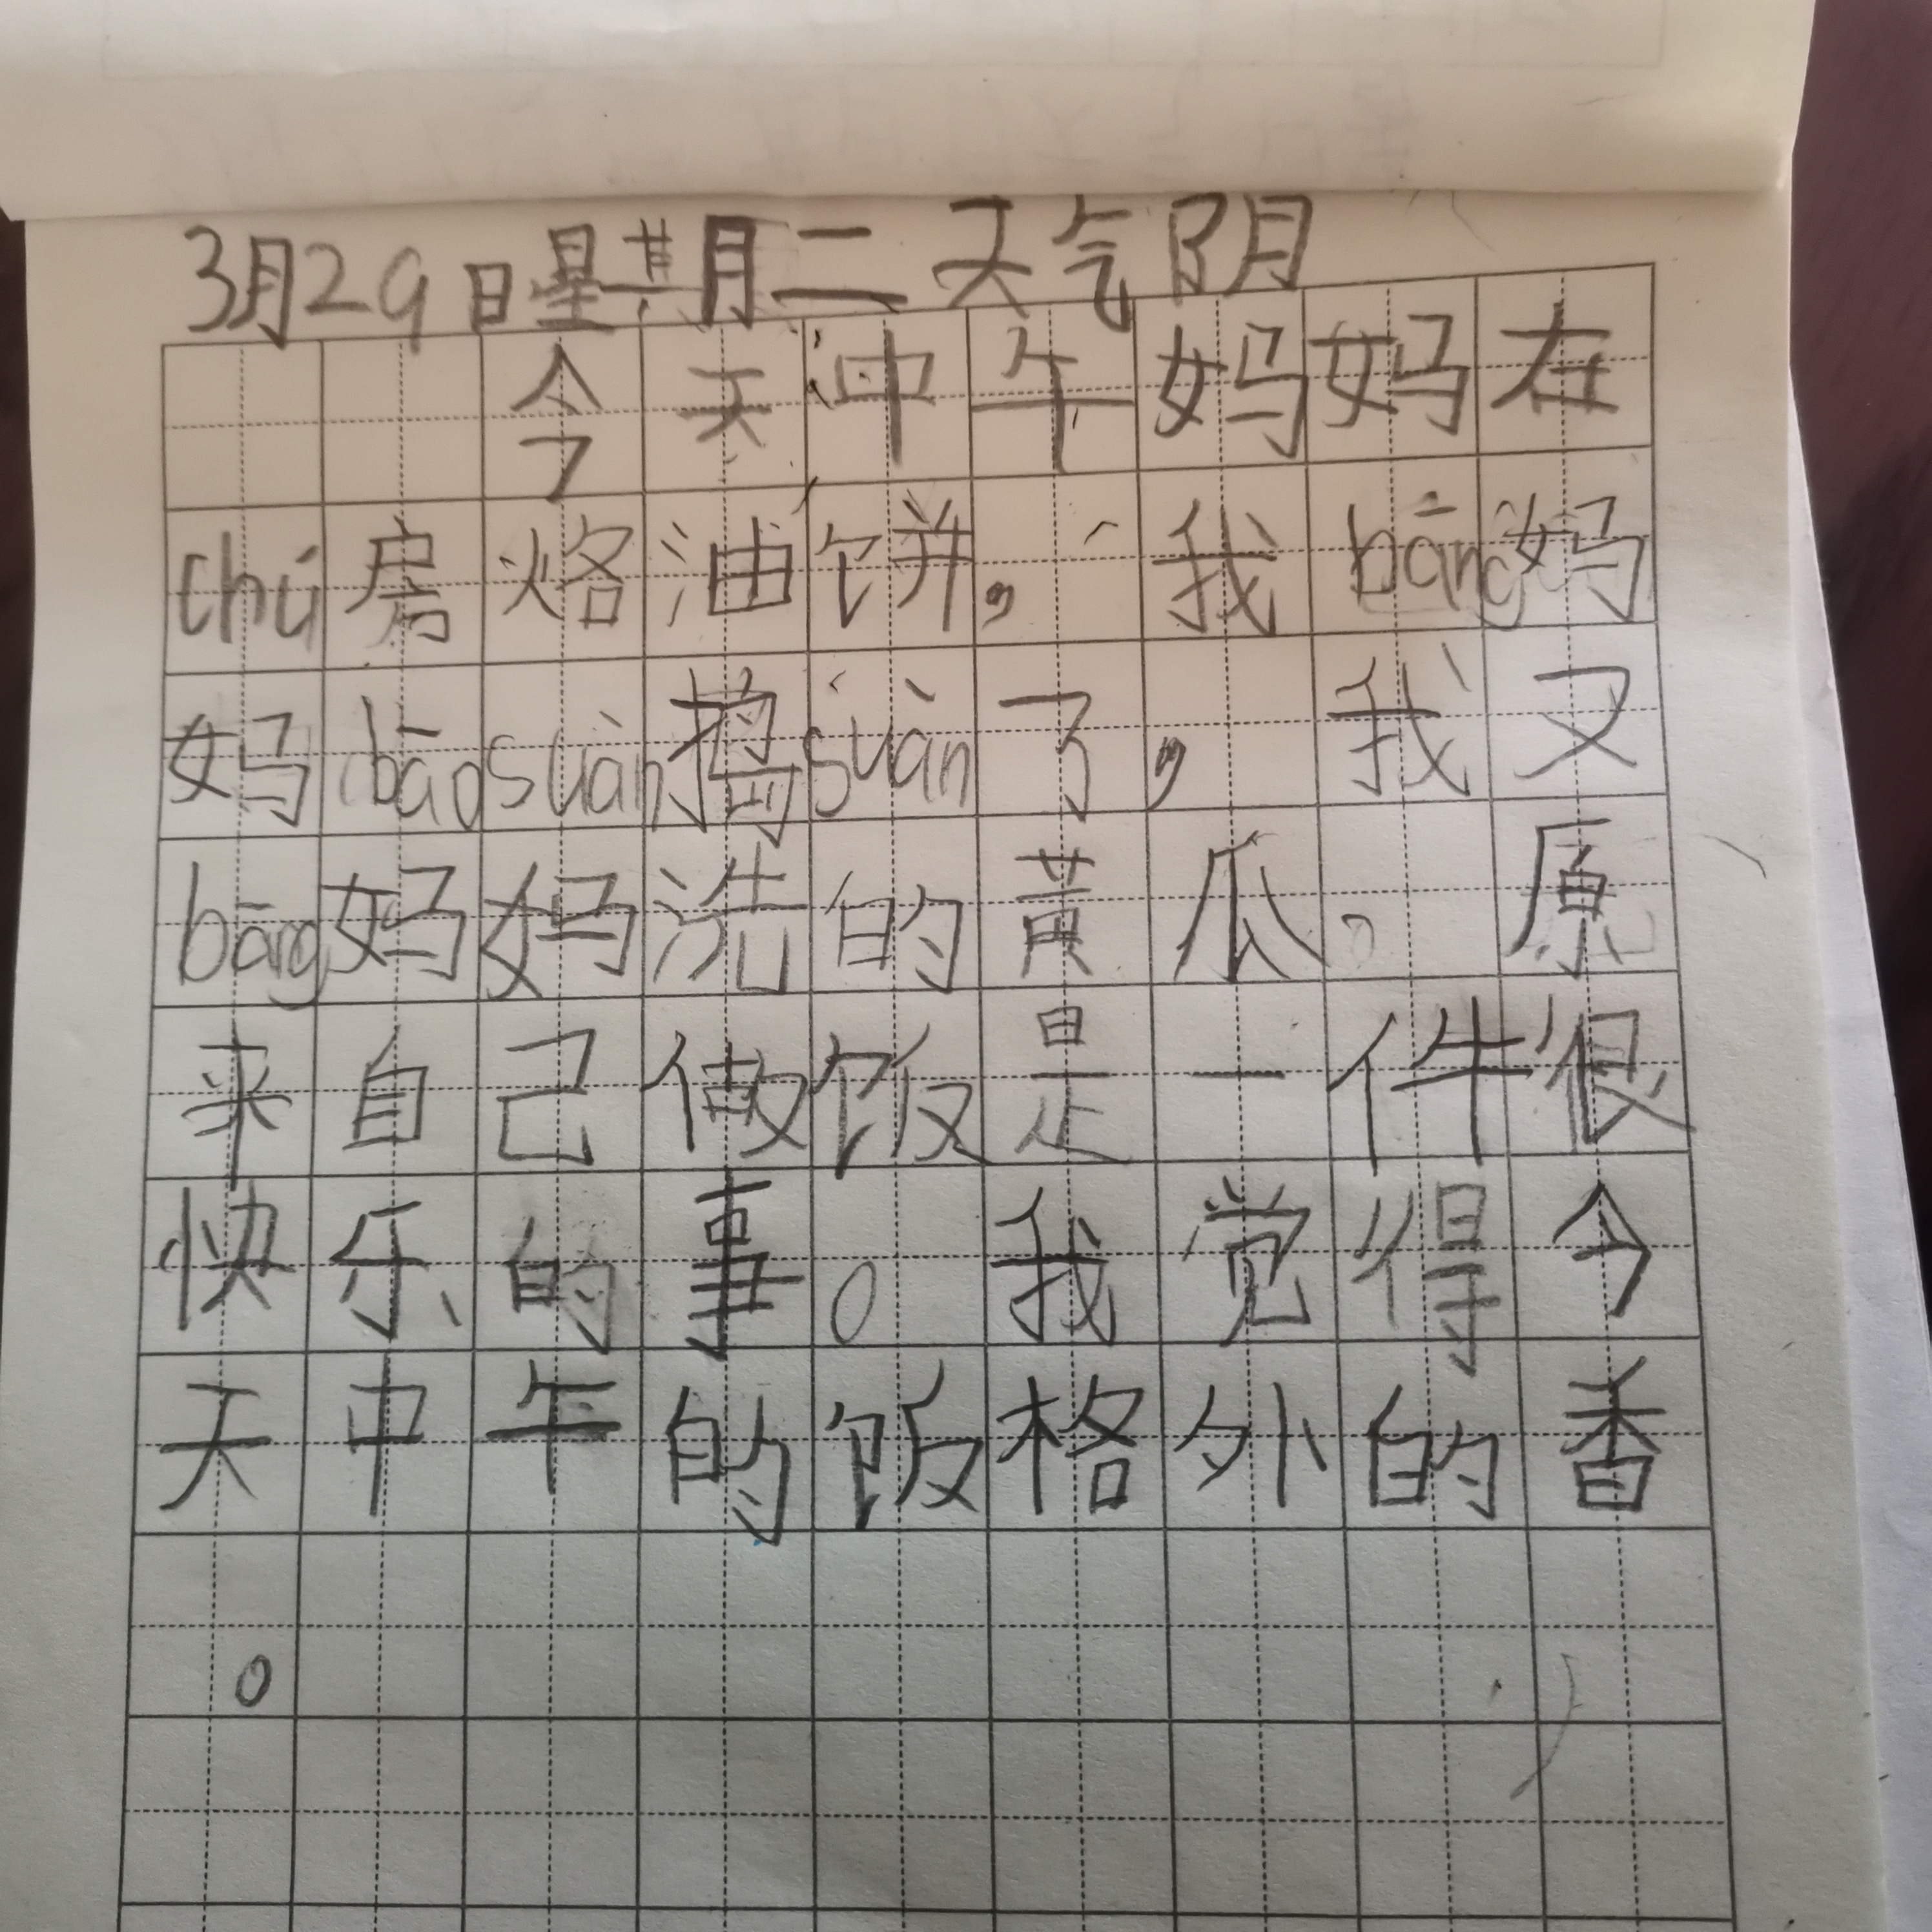 3月29日星期二天气阴
今天中午妈妈在
chú房烙油饼，我bāng妈
妈bāosuàn捣suàn了，我又
bāng妈妈洗的黄瓜。原
来自己做饭是一件很
快乐的事。我觉得今
天中午的饭格外的香
。